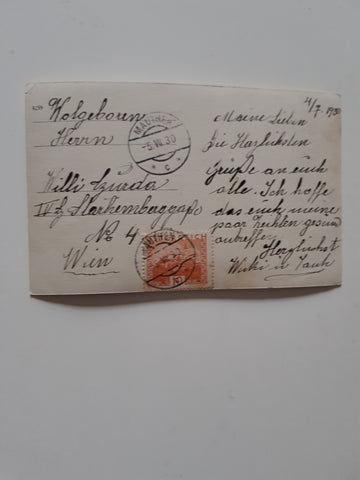 Wolgeboren
Herrn
Willi
IV Starhemberggaße
No 4
Wien
MAUTHEN
-5.VII.30
c
MAUTHEN
4/7. 1930
Meine Lieben
die Herzlichsten
Grüße an euch
alle. Ich hoffe
das euch meine
paar Zeihlen gesund
antreffen.
Herzlichst